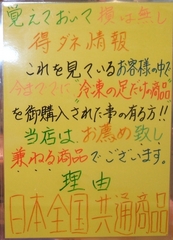 覚えておいて損は無し
得ダネ情報
これを見ているお客様の中で
今までに冷凍の足だけの商品
を御購入された事の有る方!!
当店は、お薦め致し
兼ねる商品でございます。
理由
日本全国共通商品